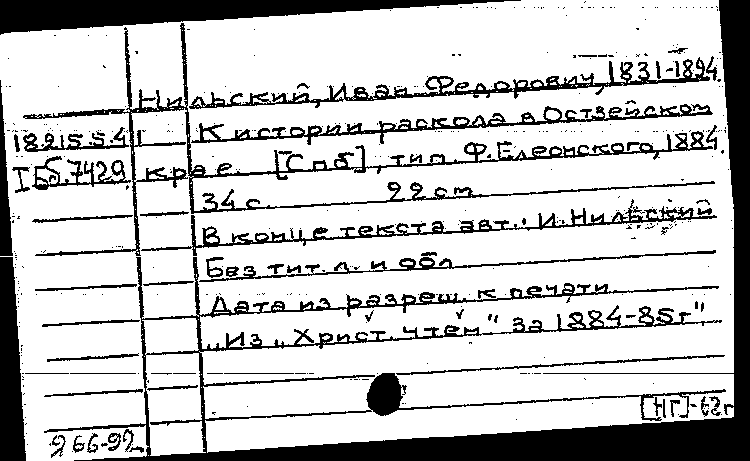 Нильский, Иван Федорович, 1831-1894
18.215.5.41 К истории раскола в Остзейском
крае. [Спб], тип. Ф. Елеонского, 1884.
34 с. 22 см
В конце текста авт.: И. Нильский
Без тит. л. и обл
Дата из разреш. к печати.
„Из „Христ. чтен" за 1884-85г"
266-92
[НГ]-62г